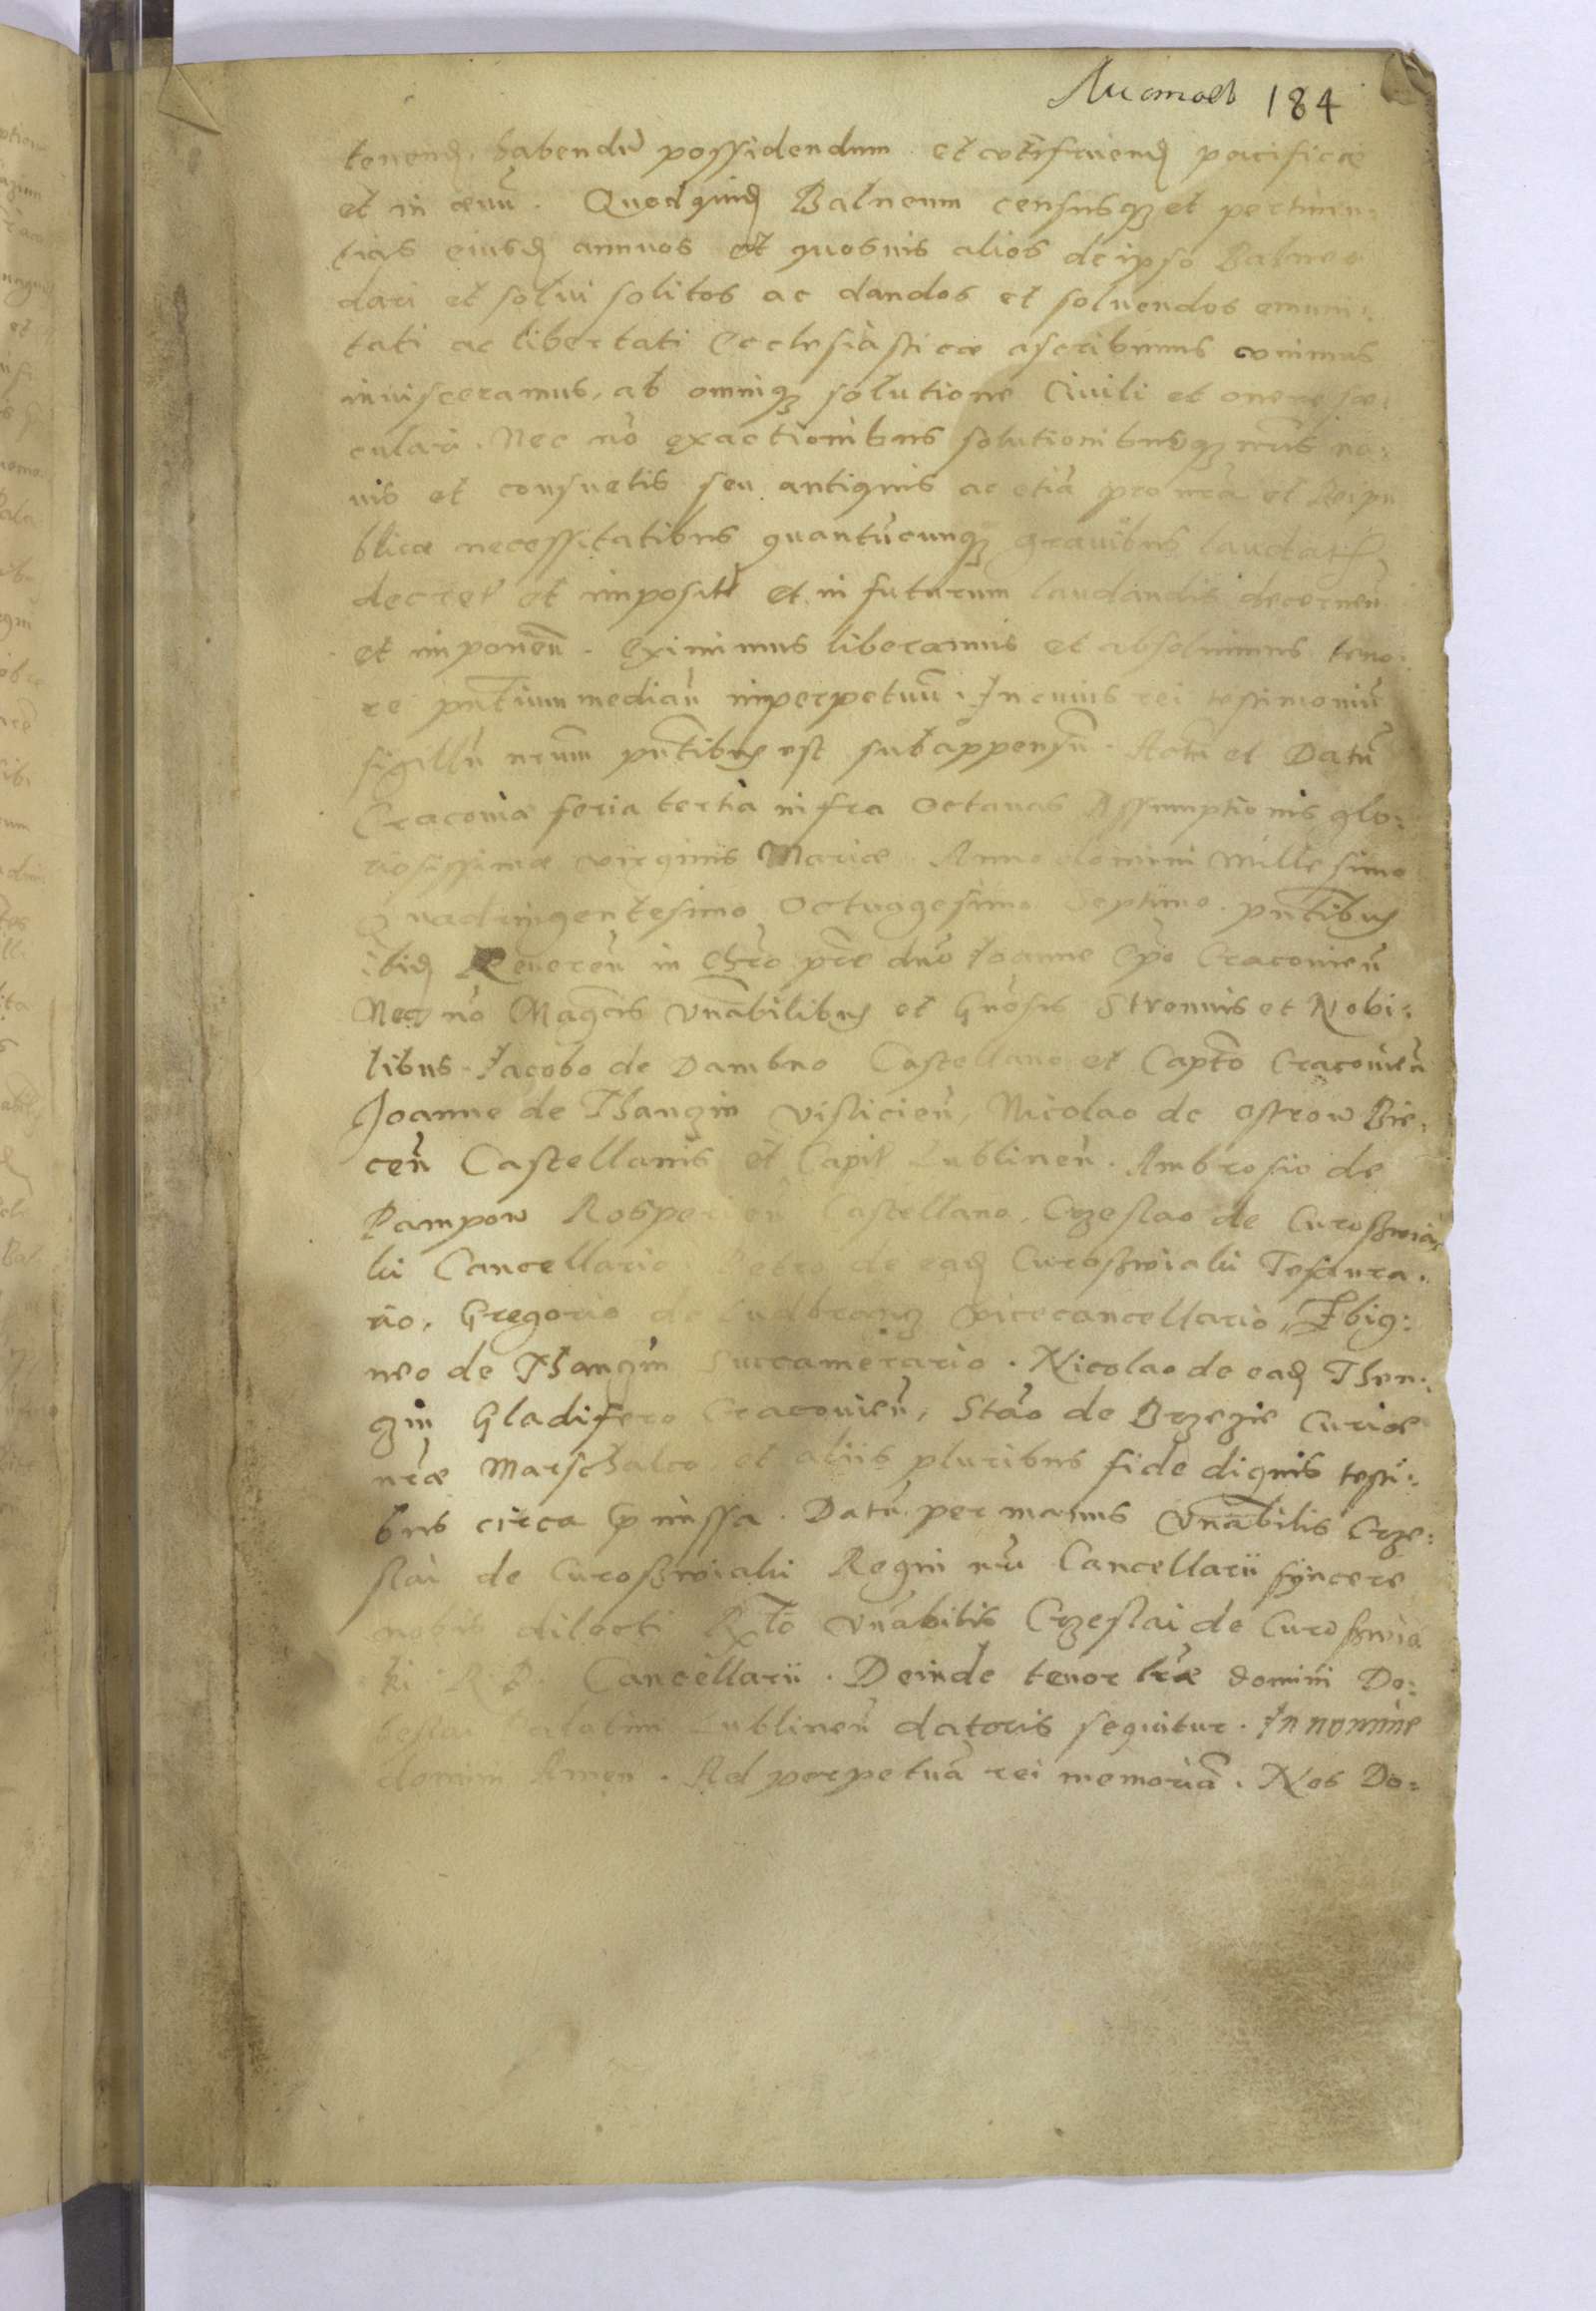 Листов 184
tenend, habendū possidendum et utifruend pacifice
et in ævū. Quodquid Balneum censusq3 et pertinen=
tias eiusd annuos et quosvis alios de ipso Balneo
dari et solvi solitos ac dandos et solvendos emuni=
tati ac libertati Ecclesiasticæ ascribimus unimus
invisceramus, ab omniq3 solutione Civili et onere sæ=
culari. Nec nō exactionibus solutionibusq3 nr̄is no=
vis et consuetis seu antiquis ac etiā pro nr̄a et Reipu
blicæ necessitatibus quantūcunq3 gravibus laudatis
decret et imposit et in futurum laudandis decernen̄
et imponen̄. Eximimus liberamus et absolvimus teno=
re pn̄tium median̄ inperpetuū. In cuius rei testimoniū
sigillū nr̄um pn̄tibus est subappensū. Actū et Datū
Cracoviæ feria tertia infra Octavas Assumptionis glo=
riosissimæ virginis Mariæ. Anno domini Millesimo
Quadringentesimo Octuagesimo Septimo. pn̄tibus
ibid Reveren̄ in Chr̄o pr̄e dn̄o Joanne Ep̄o Cracovien̄
Nec nō Maḡcis vn̄abilibus et Gn̄osis Strenuis et Nobi=
libus. Jacobo de Dambno Castellano et Capt̄o Cracovien̄
Joanne de Thanzin Visliciēn, Nicolao de Ostrow Bie=
cen̄ Castellanis et Capit Lublinen̄. Ambrosio de
Pampow Rosperien̄ Castellano, Crzeslao de Curoszwia=
ki Cancellario Petro de ead Curoszwiaki Tesaura=
rio, Gregorio de Ludbrancz vicecancellario, Zbig=
neo de Thanzin Succamerario. Nicolao de ead Then=
zin Gladifero Cracovien̄, Stāo de Brzezie Curiæ
nr̄æ Marschalco et aliis pluribus fide dignis testi=
bus circa p̄missa. Datū per manus vn̄abilis Crze=
slai de Curoszwiaki Regni nr̄i Cancellarii syncere
nobis dilecti R̄to vn̄abilis Crzeslai de Curoszwia
ki. R. P. Cancellarii. Deinde tenor lr̄æ domini Do=
beslai Palatini Lublinen̄ datoris sequitur. In nomine
domini Amen. Ad perpetuā rei memoriā. Nos Do=